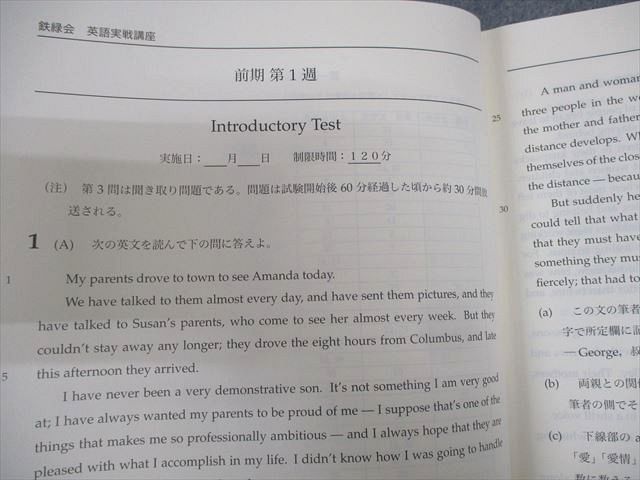 鉄緑会 英語実戦講座
前期 第1週
Introductory Test
実施日：___月___日 制限時間：120分
(注) 第3問は聞き取り問題である。問題は試験開始後60分経過した頃から約30分間放
送される。
1 (A) 次の英文を読んで下の問に答えよ。
1 My parents drove to town to see Amanda today.
We have talked to them almost every day, and have sent them pictures, and they
have talked to Susan's parents, who come to see her almost every week. But they
couldn't stay away any longer; they drove the eight hours from Columbus, and late
5 this afternoon they arrived.
I have never been a very demonstrative son. It's not something I am very good
at; I have always wanted my parents to be proud of me — I suppose that's one of the
things that makes me so professionally ambitious — and I always hope that they are
pleased with what I accomplish in my life. I didn't know how I was going to handle
A man and woman
25 three people in the wo
the mother and father
distance develops. Wh
themselves of the clos
the distance — becau
But suddenly he
30 could tell that what
that they must have
something they mus
fiercely; that had to
(a) この文の筆者
字で所定欄に記
— George, 叔
(b) 両親との関係
筆者の側でそ
(c) 下線部の a
「愛」「愛情」
数に数える